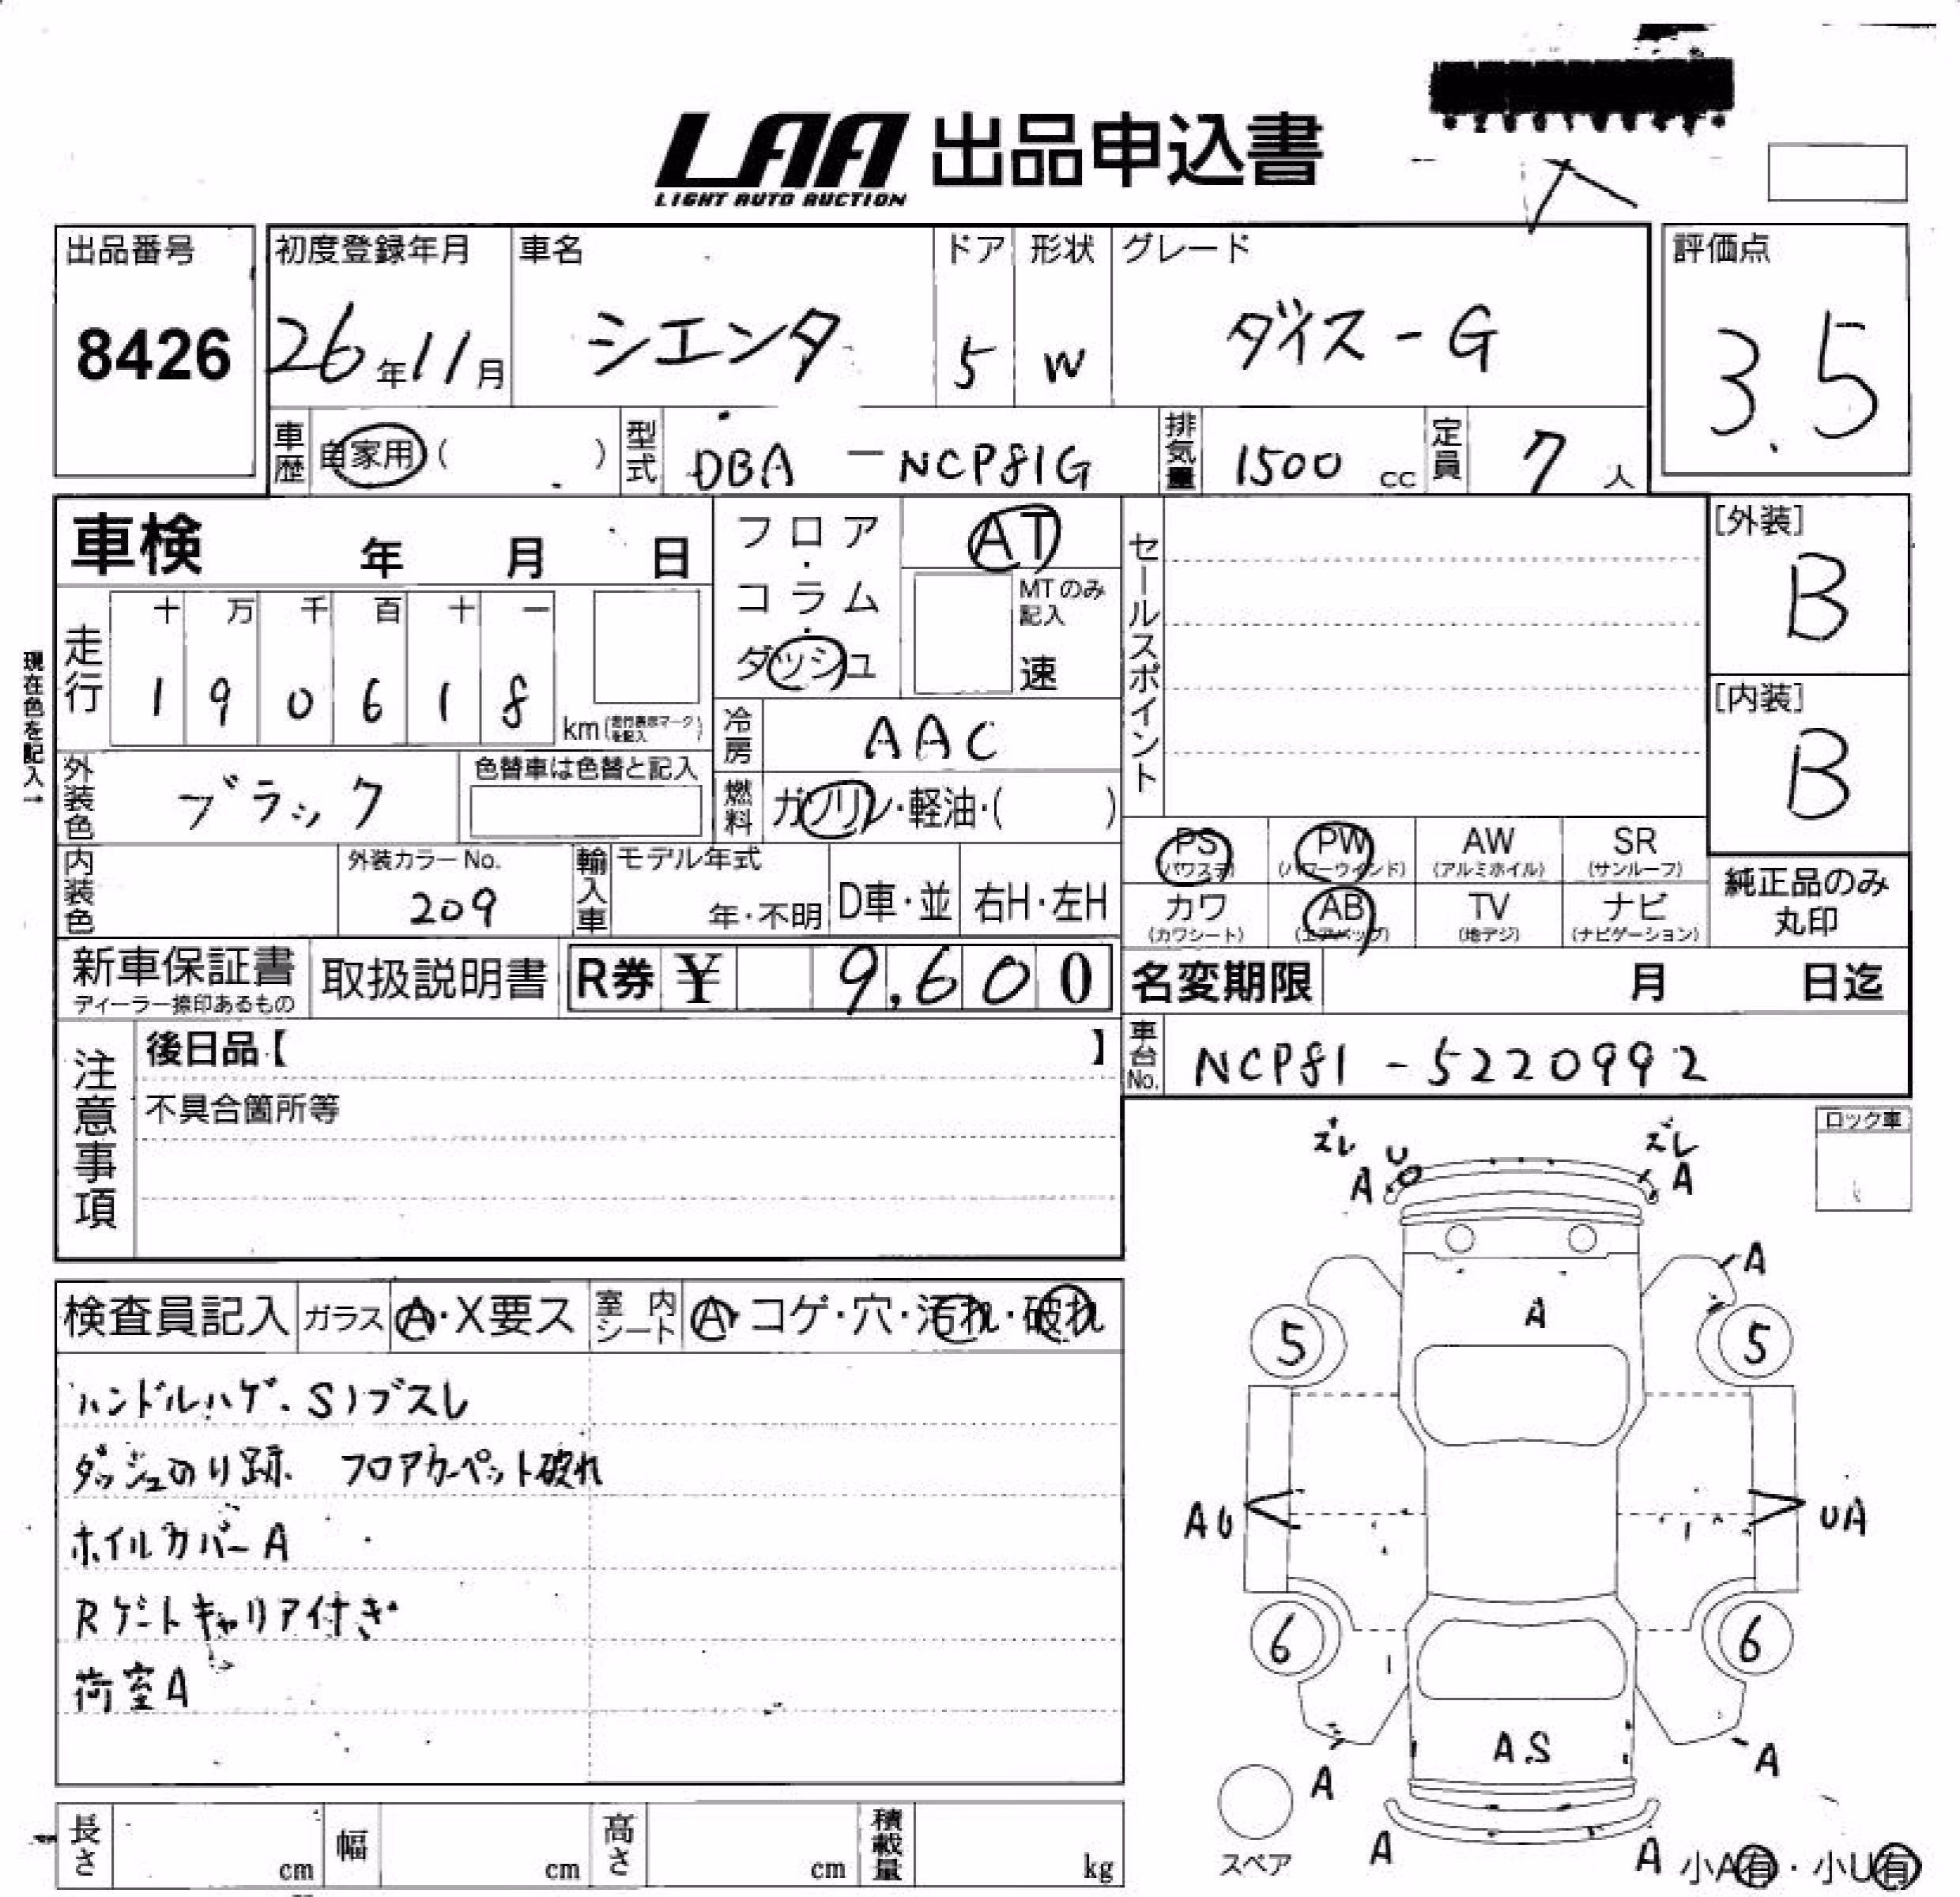 LAA 出品申込書
LIGHT AUTO AUCTION
出品番号
8426
初度登録年月
26年11月
車名
シエンタ
ドア
5
形状
W
グレード
ダイス-G
評価点
3.5
車歴 自家用( )
型式 DBA-NCP81G
排気量 1500cc
定員 7人
車検 年 月 日
現在色を記入→
走行
十 万 千 百 十 一
1 9 0 6 1 8
km(走行表示マークを記入)
フロア・コラム・ダッシュ
AT
MTのみ記入
速
冷房 AAC
燃料 ガソリン・軽油・( )
外装色 ブラック
色替車は色替と記入
内装色
外装カラーNo.
209
輸入車
モデル年式
年・不明
D車・並
右H・左H
セールスポイント
[外装]
B
[内装]
B
PS
(パワステ)
PW
(パワーウインド)
AW
(アルミホイル)
SR
(サンルーフ)
カワ
(カワシート)
AB
(エアバッグ)
TV
(地デジ)
ナビ
(ナビゲーション)
純正品のみ
丸印
新車保証書
ディーラー捺印あるもの
取扱説明書
R券 ¥ 9,600
名変期限 月 日迄
車台No. NCP81-5220992
注意事項
後日品【 】
不具合箇所等
ロック車
検査員記入
ガラス A・X要ス
室内シート A・コゲ・穴・汚れ・破れ
ハンドルハゲ、Sノブスレ
ダッシュのり跡、フロアカーペット破れ
ホイルカバーA
Rゲートキャリア付き
荷室A
ズレ
U
A
ズレ
A
A
A
5
5
AU
UA
6
6
AS
A
A
スペア
A
A
小A有・小U有
長さ cm
幅 cm
高さ cm
積載量 kg